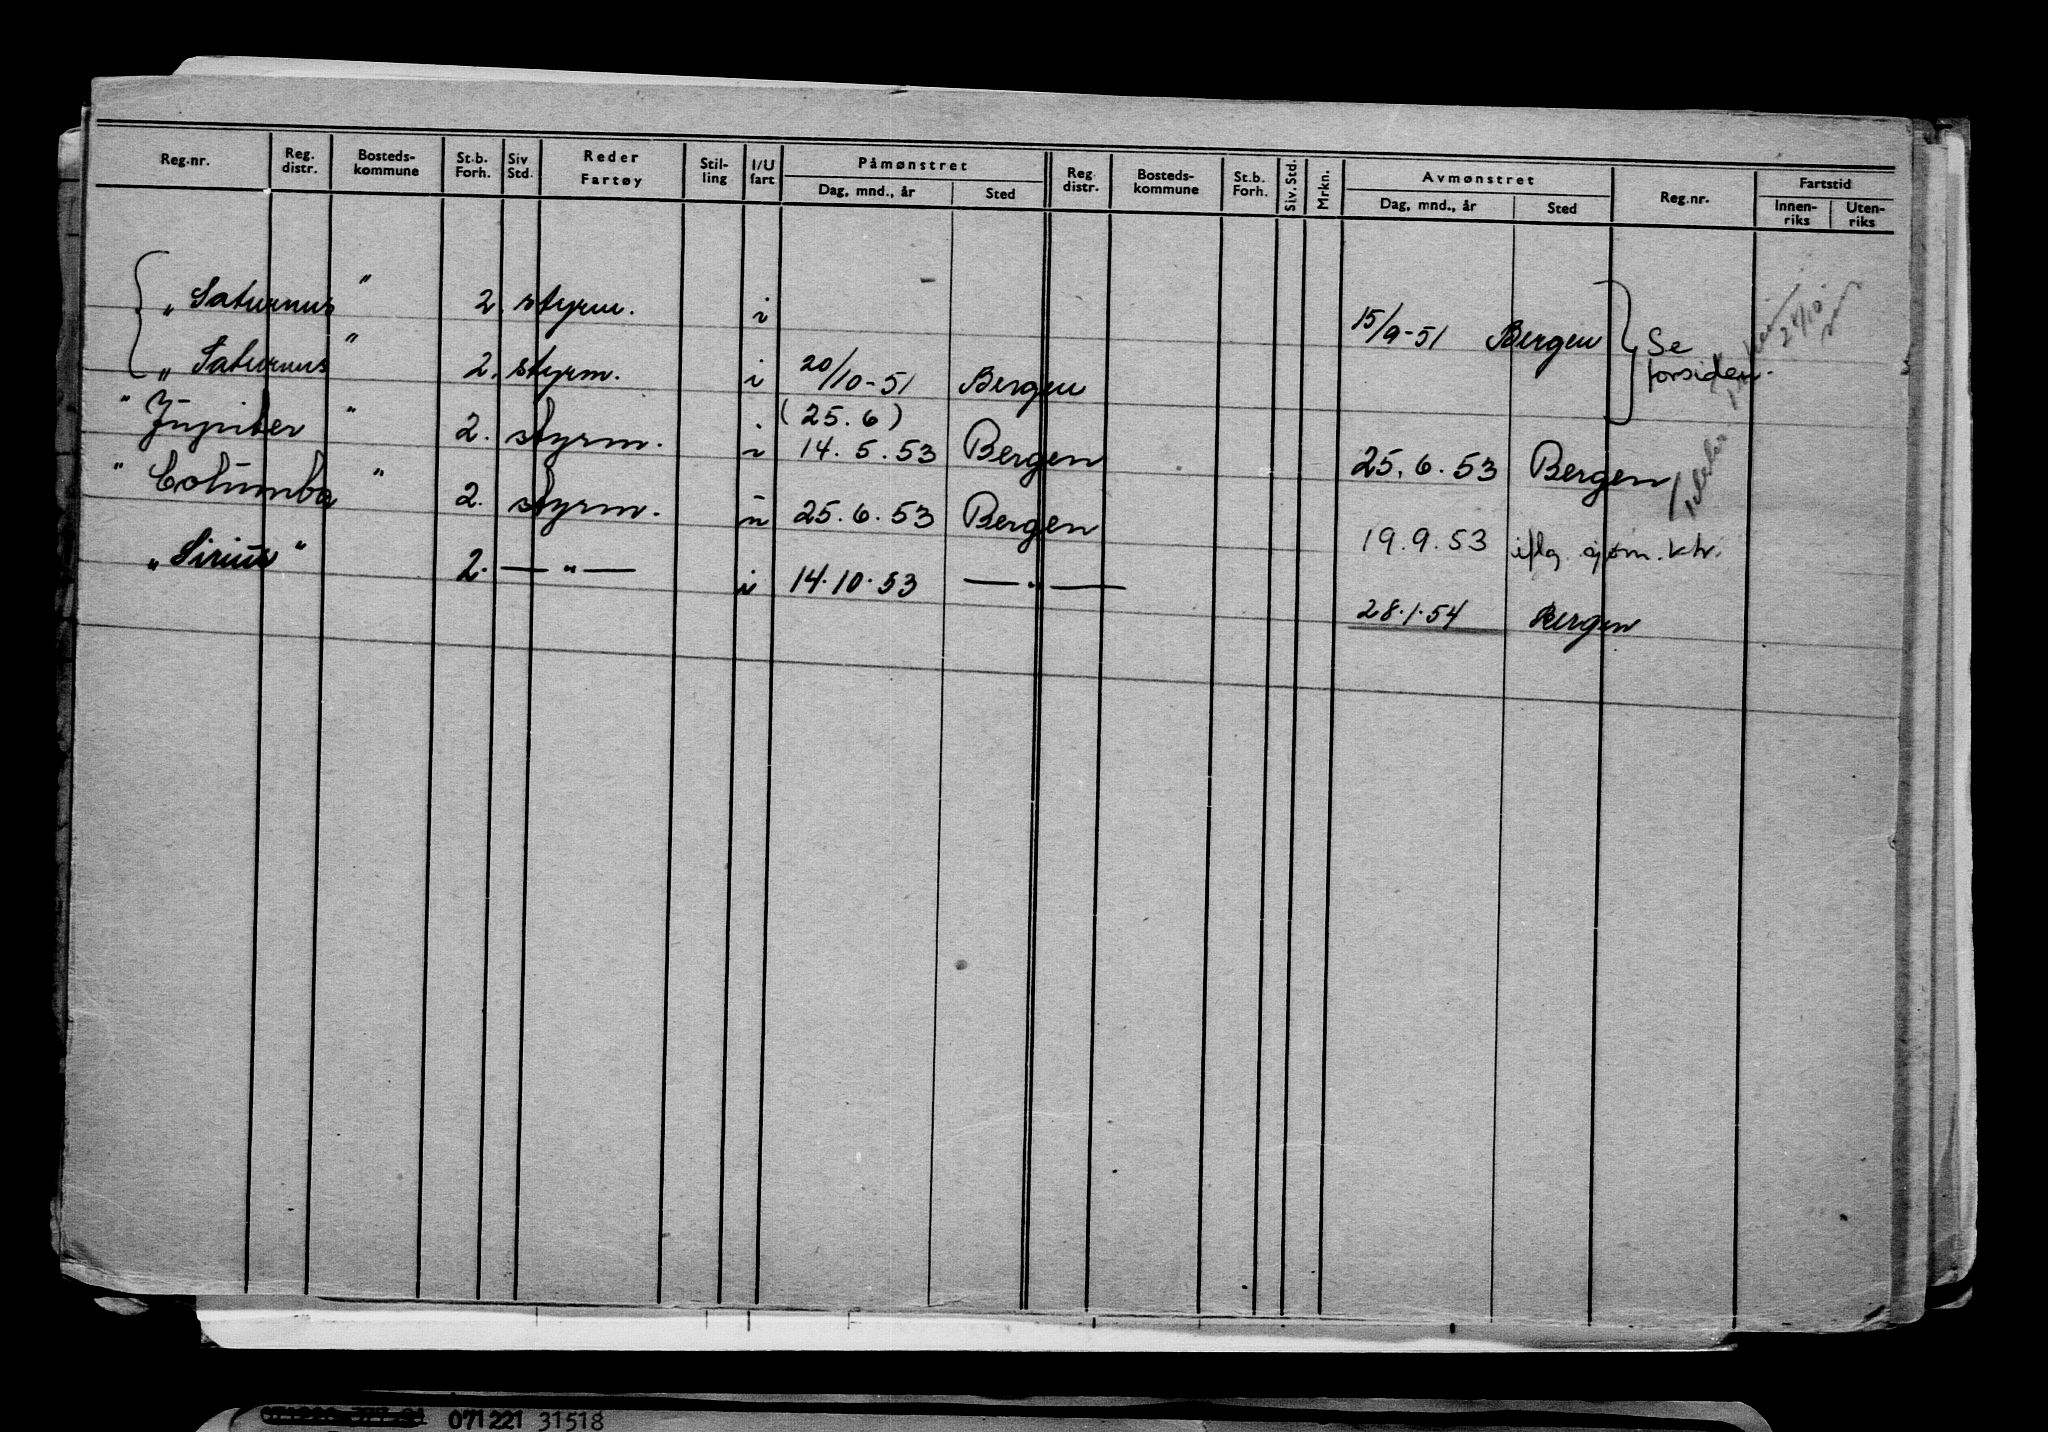 Reg.nr. Reg. distr. Bosteds-kommune St.b. Forh. Siv Std. Reder Fartøy Stil-ling I/U fart Påmønstret Reg. distr. Bosteds-kommune St.b. Forh. Siv. Std. Mrkn. Avmønstret Reg.nr. Fartstid
Dag, mnd., år Sted Dag, mnd., år Sted Innen-riks Uten-riks
„ Saturnus " 2. styrm. i 15/9-51 Bergen Se
„ Saturnus " 2. styrm. i 20/10-51 Bergen forsiden.
(25.6)
" Jupiter " 2. styrm. i 14.5.53 Bergen 25.6.53 Bergen
" Columba " 2. styrm. u 25.6.53 Bergen 19.9.53 iflg. sjøm. ktr.
„ Sirius " 2. — „ — i 14.10.53 — „ — 28.1.54 Bergen
071221 31518